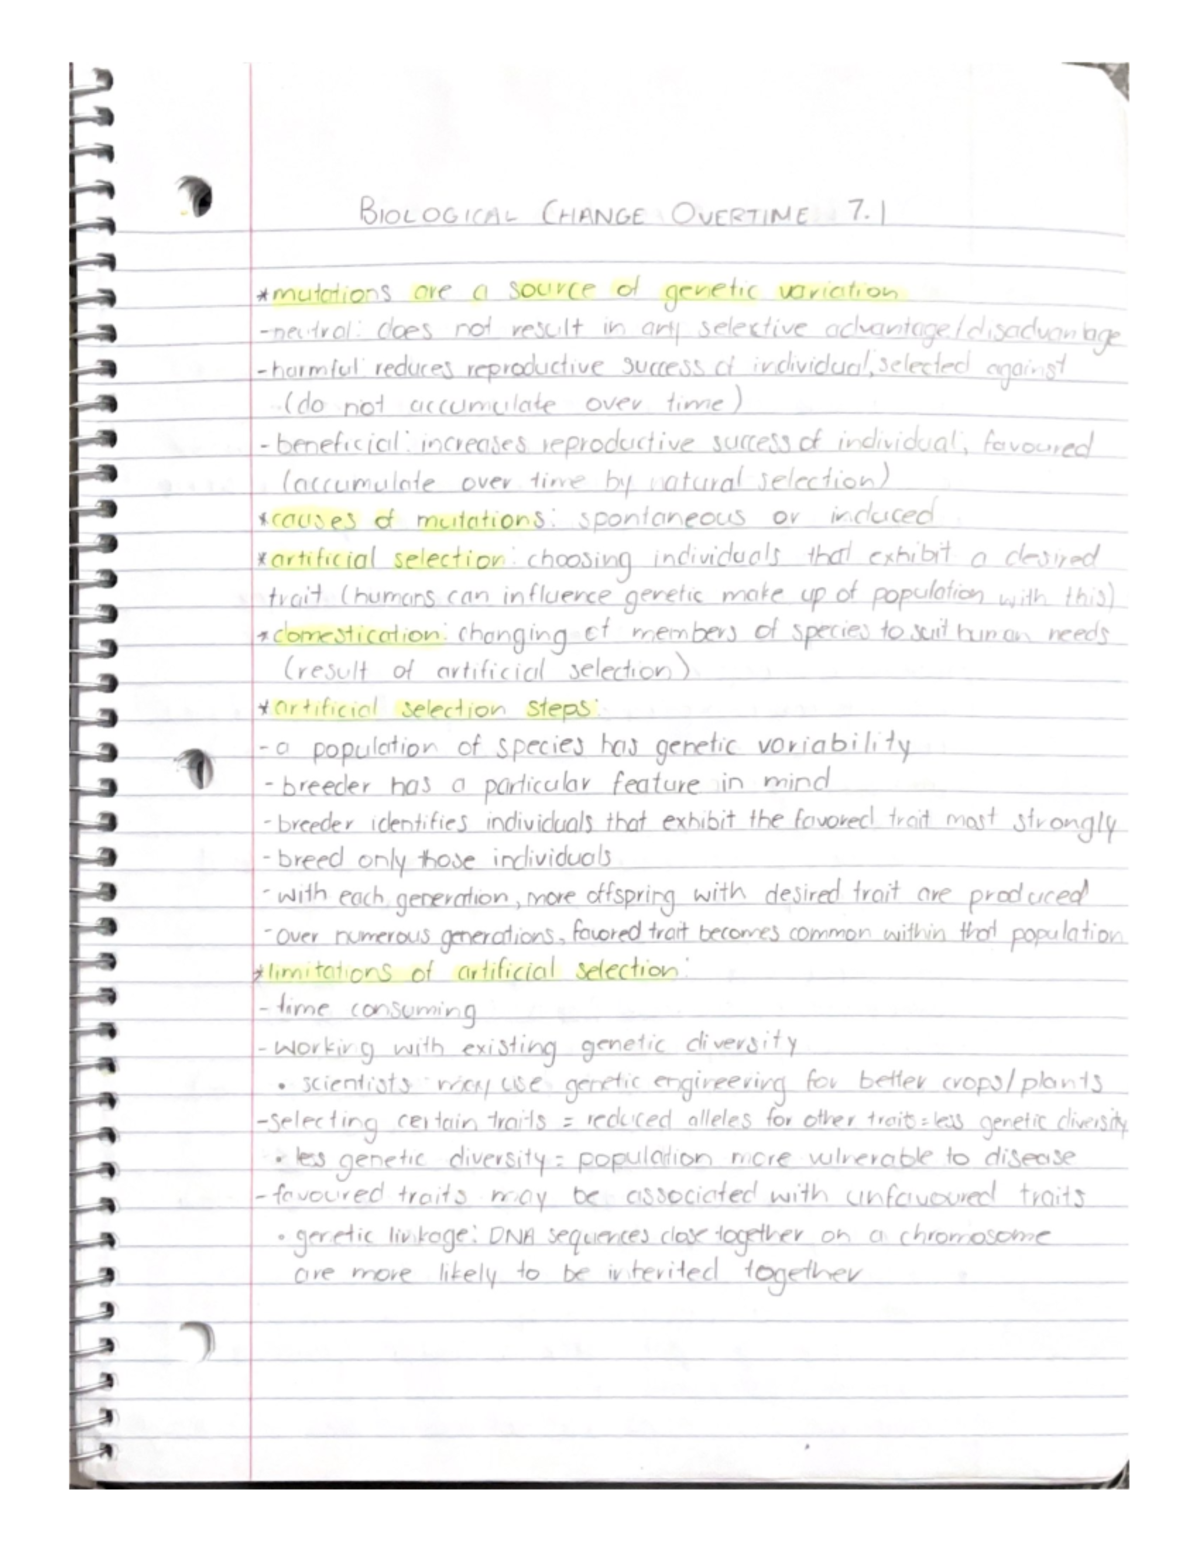 BIOLOGICAL CHANGE OVERTIME 7.1
*mutations are a source of genetic variation
-neutral: does not result in any selective advantage/disadvantage
-harmful: reduces reproductive success of individual, selected against
(do not accumulate over time)
-beneficial: increases reproductive success of individual, favoured
(accumulate over time by natural selection)
*causes of mutations: spontaneous or induced
*artificial selection: choosing individuals that exhibit a desired
trait (humans can influence genetic make up of population with this)
*domestication: changing of members of species to suit human needs
(result of artificial selection)
*artificial selection steps:
-a population of species has genetic variability
-breeder has a particular feature in mind
-breeder identifies individuals that exhibit the favored trait most strongly
-breed only those individuals
-with each generation, more offspring with desired trait are produced
-over numerous generations, favored trait becomes common within that population
*limitations of artificial selection:
-time consuming
-working with existing genetic diversity
• scientists may use genetic engineering for better crops/plants
-selecting certain traits = reduced alleles for other trait = less genetic diversity
• less genetic diversity = population more vulnerable to disease
-favoured traits may be associated with unfavoured traits
• genetic linkage: DNA sequences close together on a chromosome
are more likely to be inherited together